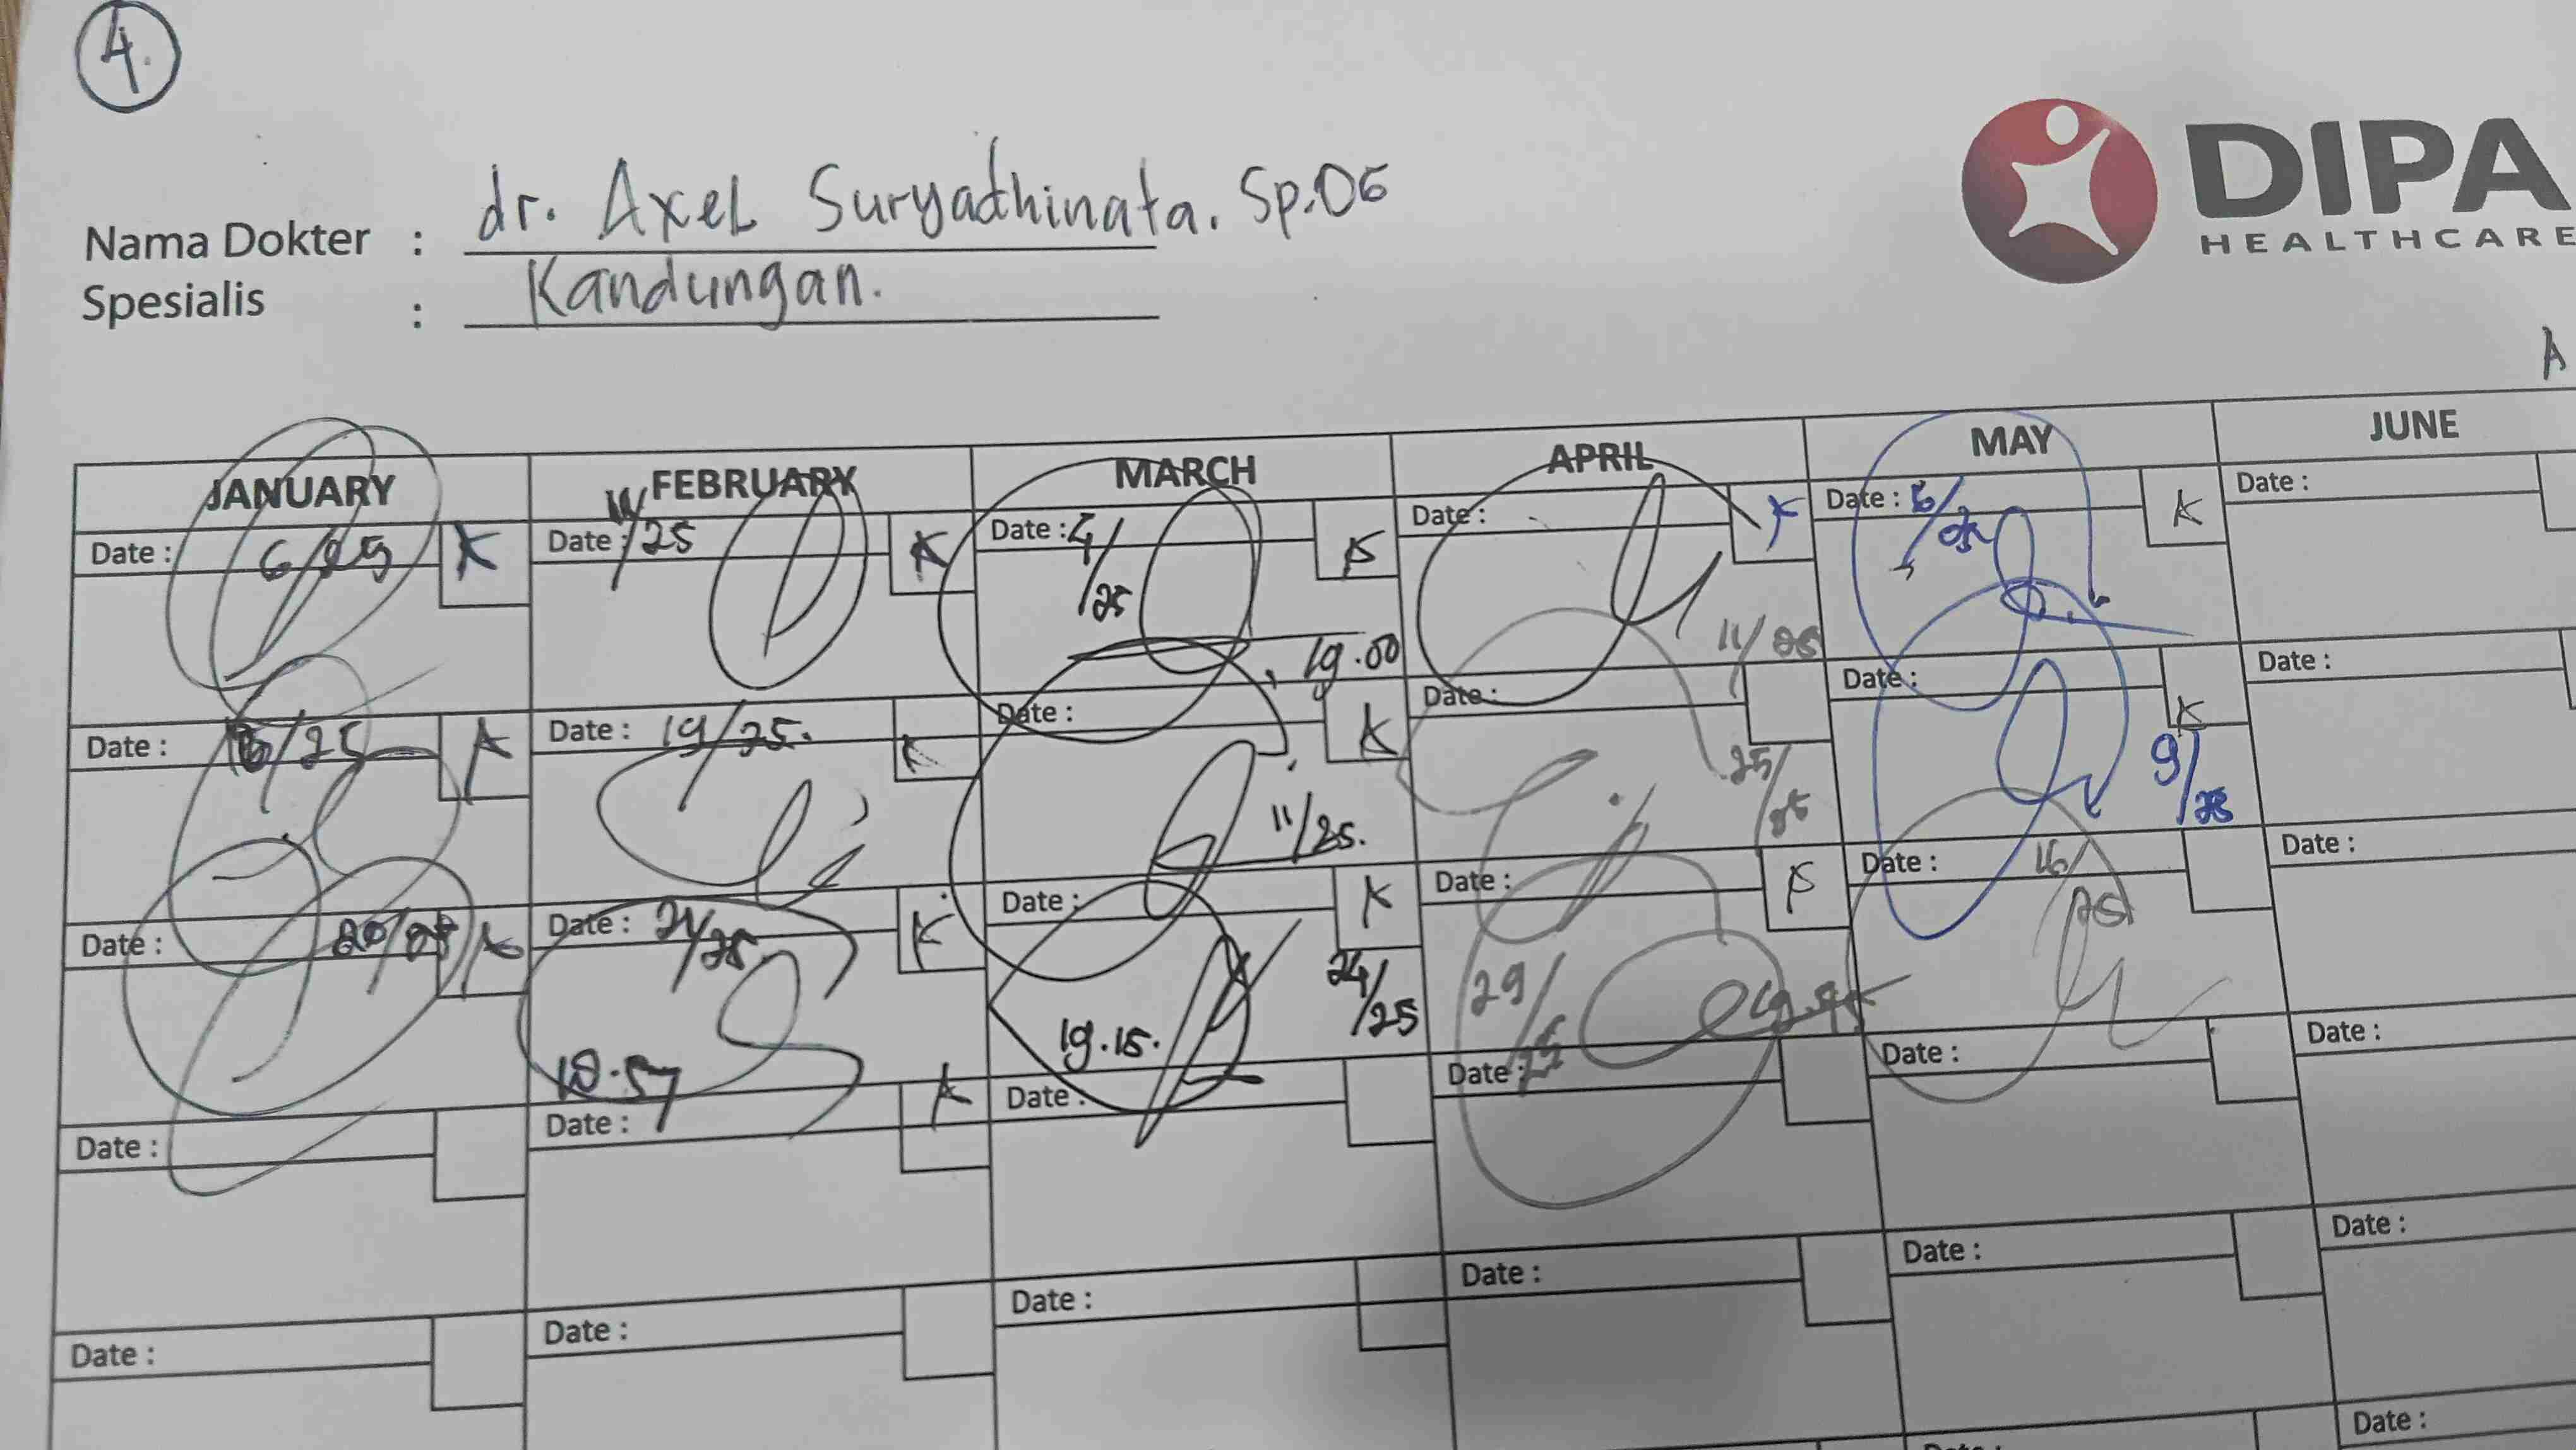 4.
DIPA
HEALTHCARE
Nama Dokter : dr. Axel Suryadhinata. Sp.OG
Spesialis : Kandungan.
A
JANUARY FEBRUARY MARCH APRIL MAY JUNE
Date : 6/25 K Date : 11/25 K Date : 4/25 K Date : K Date : 5/25 K Date :
19.00 11/25
Date : /25 K Date : 19/25. K Date : K Date : Date : K Date :
11/25. 25/25 9/25
Date : 20/25 K Date : 21/25 K Date : K Date : K Date : 16/25 Date :
18.57 19.15. 24/25 29/25
Date : Date : K Date : Date : Date : Date :
Date : Date : Date : Date : Date : Date :
Date :